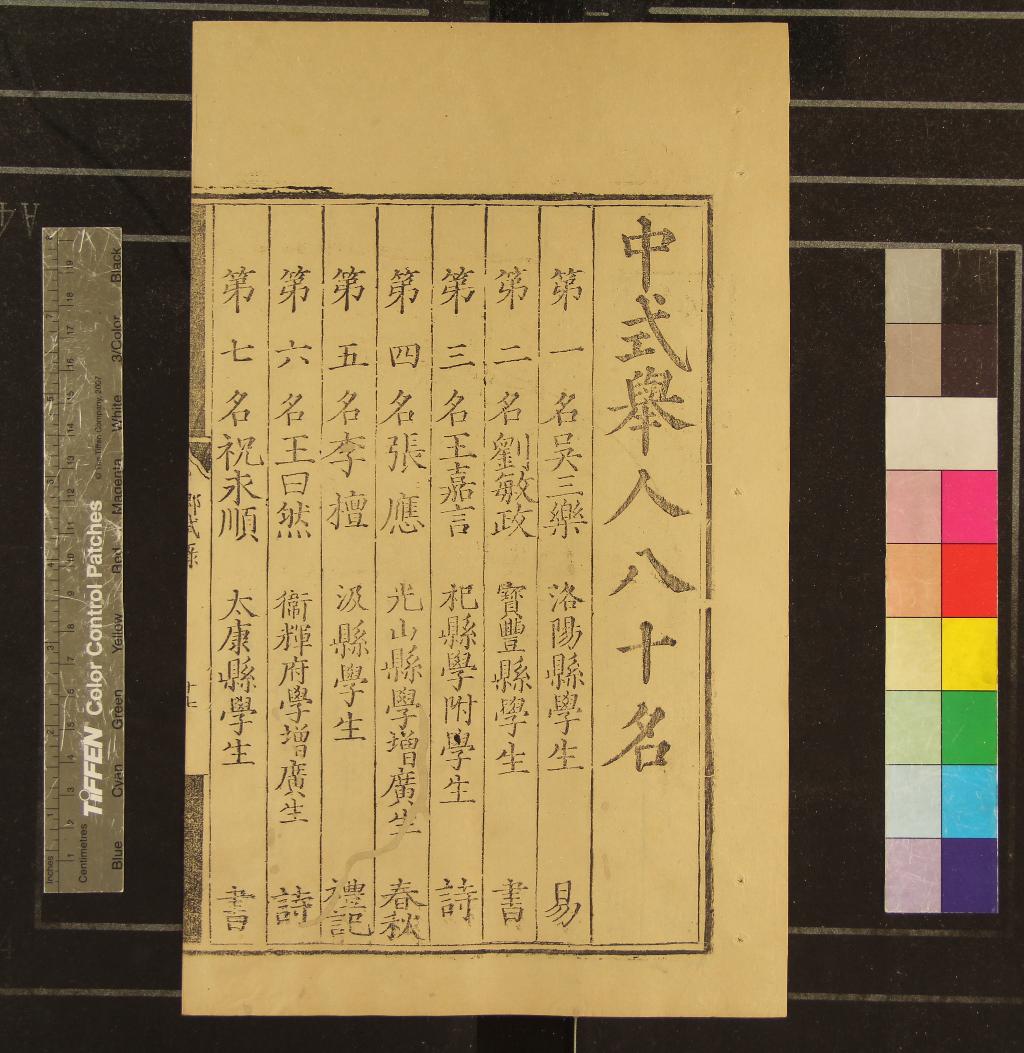 中式舉人八十名
第一名吳三樂 洛陽縣學生 易
第二名劉敏政 寳豐縣學生 書
第三名王嘉言 杞縣學附學生 詩
第四名張應 光山縣學增廣生 春秋
第五名李檀 汲縣學生 禮記
第六名王曰然 衞輝府學增廣生 詩
第七名祝永順 太康縣學生 書
十七
Inches
Centimetres
TIFFEN Color Control Patches
© The Tiffen Company, 2007
Blue Cyan Green Yellow Red Magenta White 3/Color Black
A4